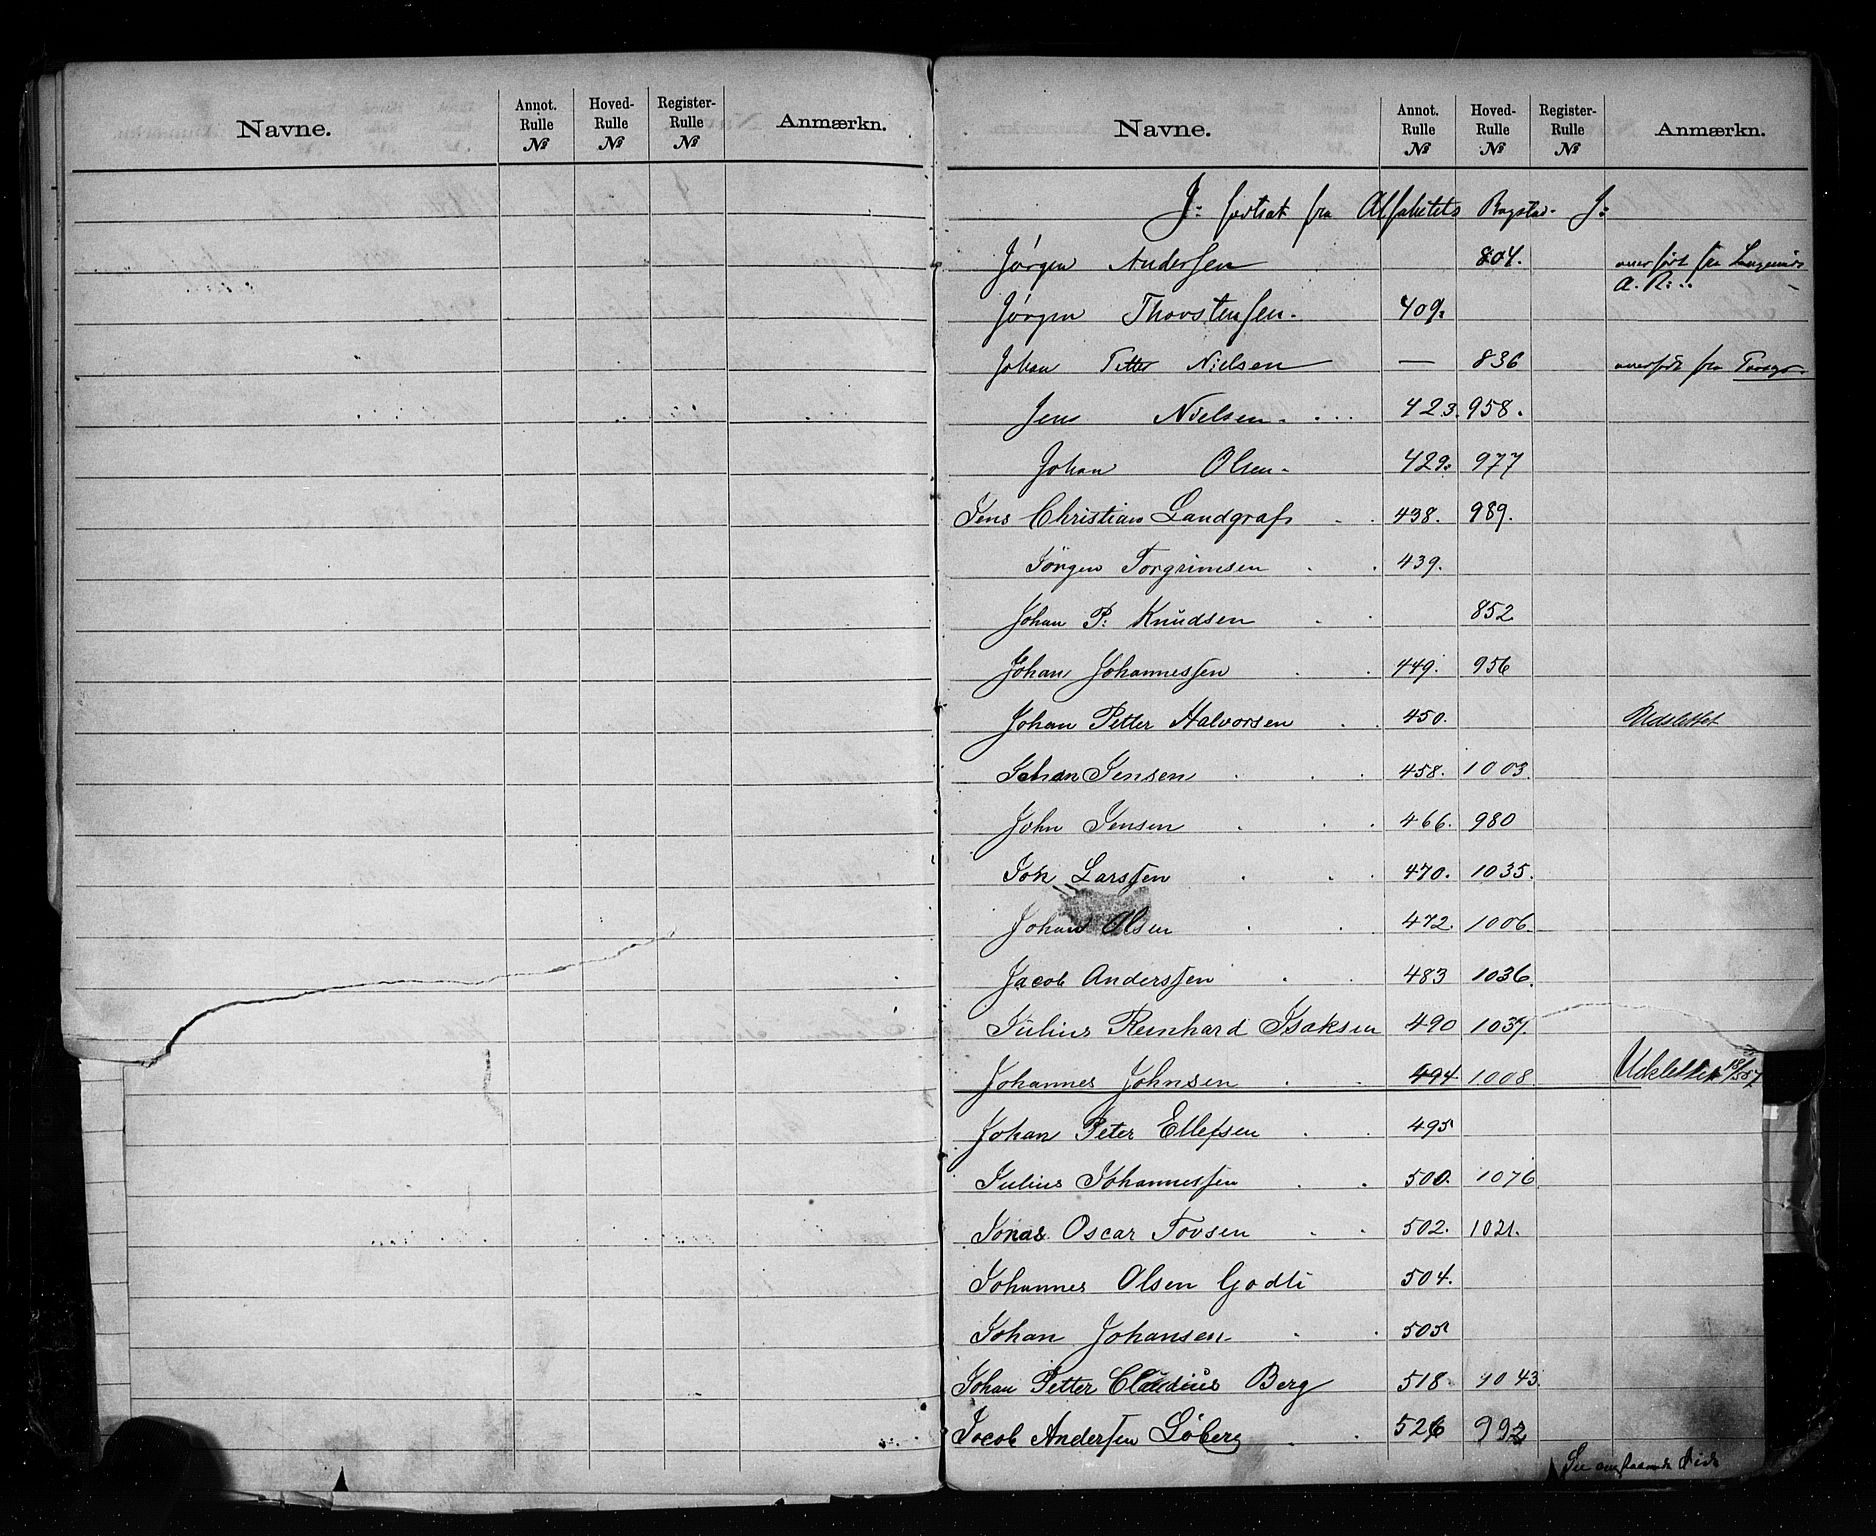 Navne. Annot. Rulle № Hoved- Rulle № Register- Rulle № Anmærkn.
Navne. Annot. Rulle № Hoved- Rulle № Register- Rulle № Anmærkn.
J: fortsat fra Alfabetets Bogstav J:
Jørgen Andersen 804. overført fra
A. R:
Jørgen Thorstensen. 409.
Johan Petter Nielsen — 836 overført fra
Jens Nielsen. 423. 958.
Johan Olsen 429. 977
Jens Christian Landgraf 438. 989.
Jörgen Torgrimsen 439.
Johan P. Knudsen 852
Johan Johannessen 449. 956
Johan Petter Halvorsen 450. Udslettet
Johan Jensen 458. 1003.
John Jensen 466. 980
Joh Larssen 470. 1035.
Johan Olsen 472. 1006.
Jacob Anderssen 483 1036.
Julius Reinhard Isaksen 490 1037.
Johannes Johnsen 494 1008 Udslettet
Johan Peter Ellefsen 495
Julius Johannessen 500. 1076
Jonas Oscar Tovsen 502. 1021.
Johannes Olsen Godti 504.
Johan Johansen 505
Johan Petter Claudius Berg 518 1043
Jacob Andersen Löberg 526 992
See omstaaende Side